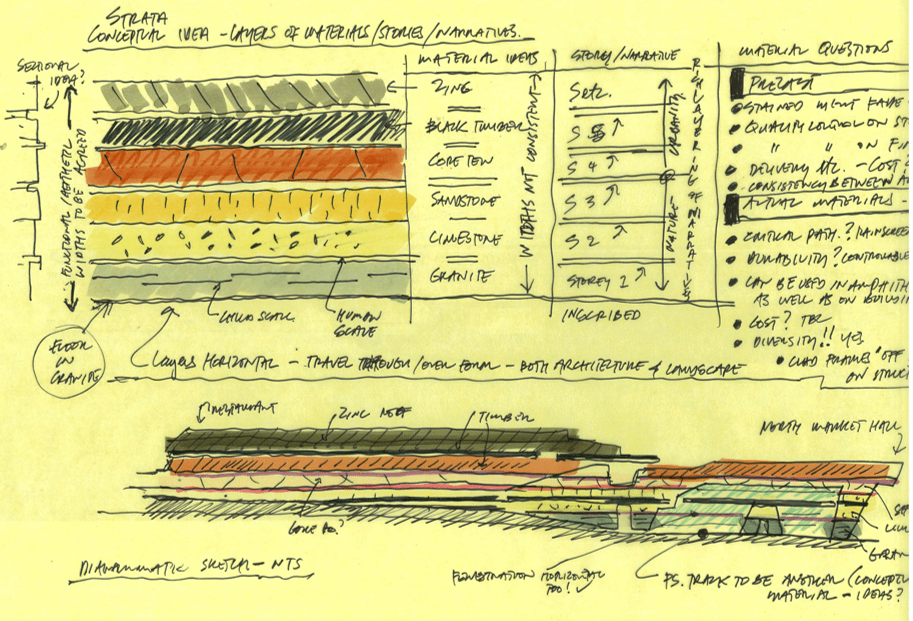 STRATA
CONCEPTUAL IDEA - LAYERS OF MATERIALS/STORIES/NARRATIVES.
SECTIONAL IDEA?
FUNCTIONAL/AESTHETIC WIDTHS TO BE AGREED
MATERIAL IDEAS
ZINC
BLACK TIMBER
CORETEN
SANDSTONE
LIMESTONE
GRANITE
WIDTHS NOT CONSISTENT
STOREY/NARRATIVE
Set2.
S 5
S 4
S 3
S 2
STOREY 1
INSCRIBED
NATURE
URBANITY
OF NARRATIVE
MATERIAL QUESTIONS
PRECAST
STAINED MIGHT FADE
QUALITY CONTROL ON ST
" " ON FI
DELIVERY ETC. - COST
CONSISTENCY BETWEEN
ACTUAL MATERIALS -
CRITICAL PATH? RAINSCREE
DURABILITY? CONTROLLABLE
CAN BE USED IN AMPHITH
AS WELL AS ON BUILDIN
COST? TBC
DIVERSITY!! YES
CLAD FRAMES 'OFF
ON STRUCT
CHILD SCALE
HUMAN SCALE
FLOOR IN GRANITE
LAYERS HORIZONTAL - TRAVEL THROUGH/OVER FORM - BOTH ARCHITECTURE & LANDSCAPE
RESTAURANT
ZINC ROOF
TIMBER
NORTH MARKET HALL
DIAGRAMMATIC SKETCH - NTS
FENESTRATION HORIZONTAL
TOO!
PS. TRACK TO BE ANOTHER (CONCEPT
MATERIAL - IDEAS?
GRAN